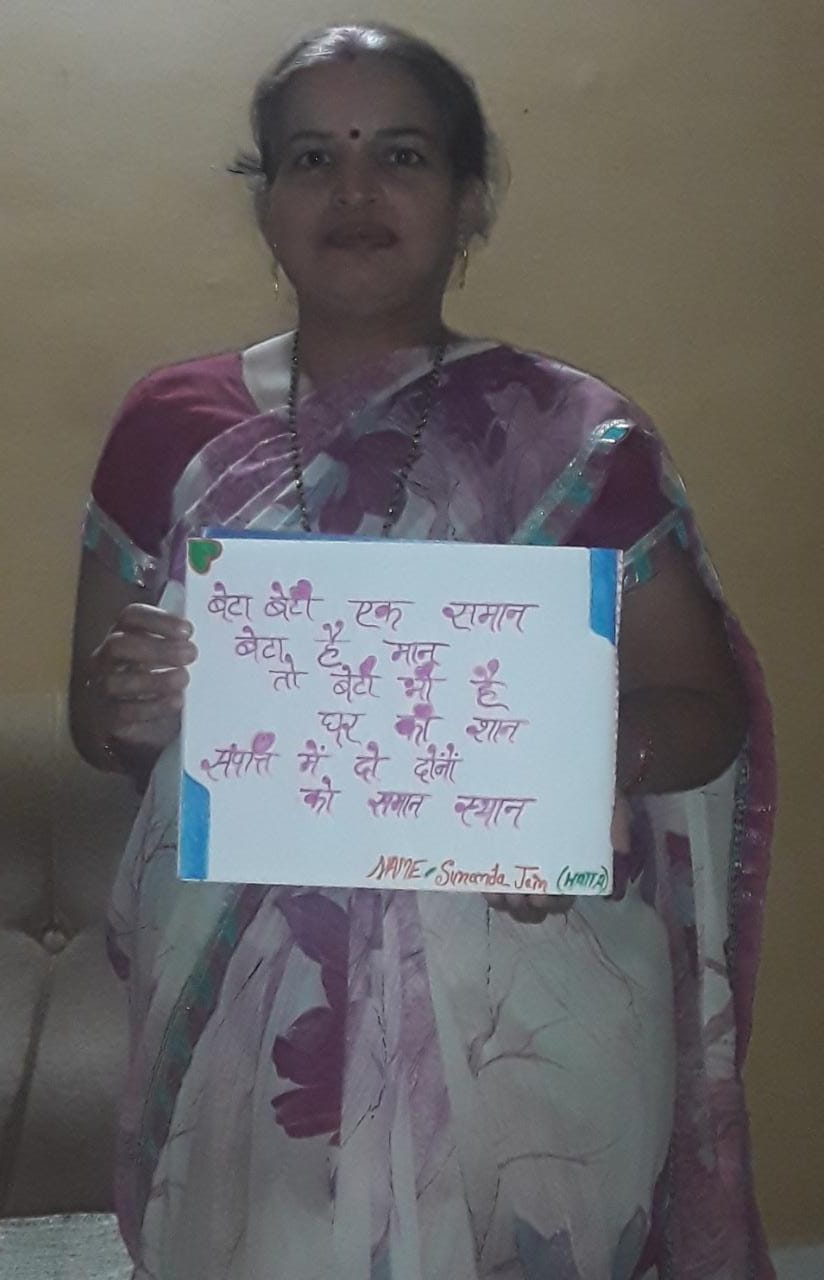 बेटा बेटी एक समान
बेटा है मान
तो बेटी भी है
घर की शान
संपत्ति में दो दोंनों
को समान स्थान
NAME- Sunanda Jain (HATTA)